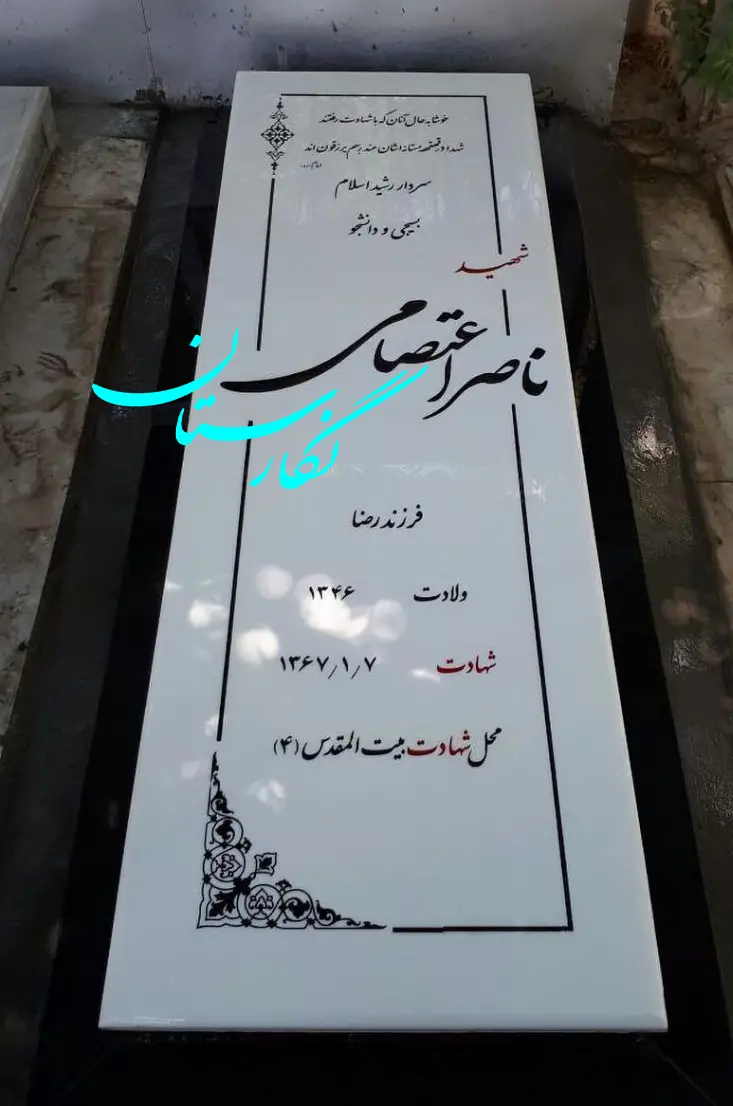 خوشا به حال آنان که با شهادت رفتند
شهدا در قهقهه مستانه‌اشان عند ربهم یرزقون‌اند
سردار رشید اسلام
بسیجی و دانشجو
شهید
ناصر اعتصامی
نگارستان
فرزند رضا
ولادت ۱۳۴۶
شهادت ۱۳۶۷/۱/۷
محل شهادت بیت المقدس (۴)